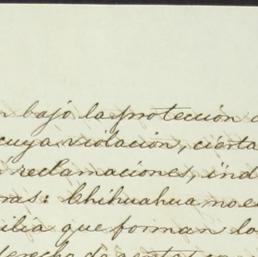 bajo la protección
cuya violación, cierta
reclamaciones, ind
ras: Chihuahua no e
ilia que forman lo
derecho de